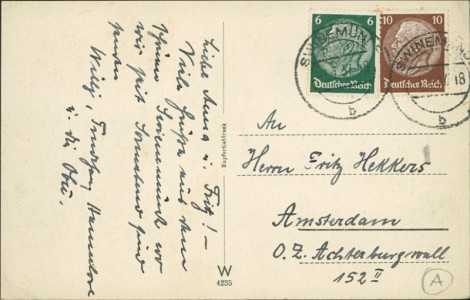 Liebe Anna u. Fritz! –
Viele Grüße aus dem
schönen Swinemünde wo
wir seit Sonnabend sind
senden
Willy,
Hannelore
u. die Oma.
Kupfertiefdruck
W
4235
6 6
Deutsches Reich
10 10
Deutsches Reich
SWINEMÜN
b
SWINEMÜNDE
18
b
An
Herrn Fritz Hekkers
Amsterdam
O.Z. Achterburgwall
152 II
A